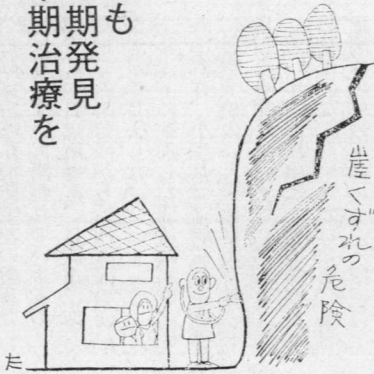 も
期発見
期治療を
崖くずれの
危険
た